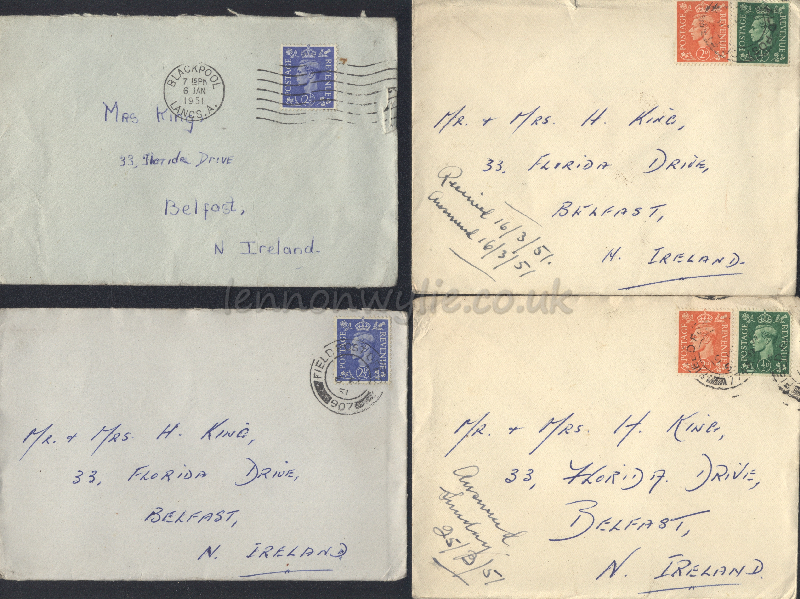 BLACKPOOL
7 15PM
6 JAN
1951
LANCS.A.
POSTAGE REVENUE
Mrs King
33, Florida Drive
Belfast,
N Ireland.
POSTAGE REVENUE
POSTAGE REVENUE
Mr. + Mrs. H. King,
33, Florida Drive,
Belfast,
N. Ireland.
Received 16/3/51.
Answered 16/3/51
lennonwylie.co.uk
FIELD
51
907
POSTAGE REVENUE
Mr. + Mrs. H. King,
33, Florida Drive,
Belfast,
N. Ireland
POSTAGE REVENUE
POSTAGE REVENUE
Mr. + Mrs. H. King,
33, Florida Drive,
Belfast,
N. Ireland.
Answered
Sunday
25/3/51